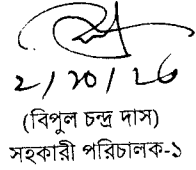 ২/১০/২৩
(বিপুল চন্দ্র দাস)
সহকারী পরিচালক-১